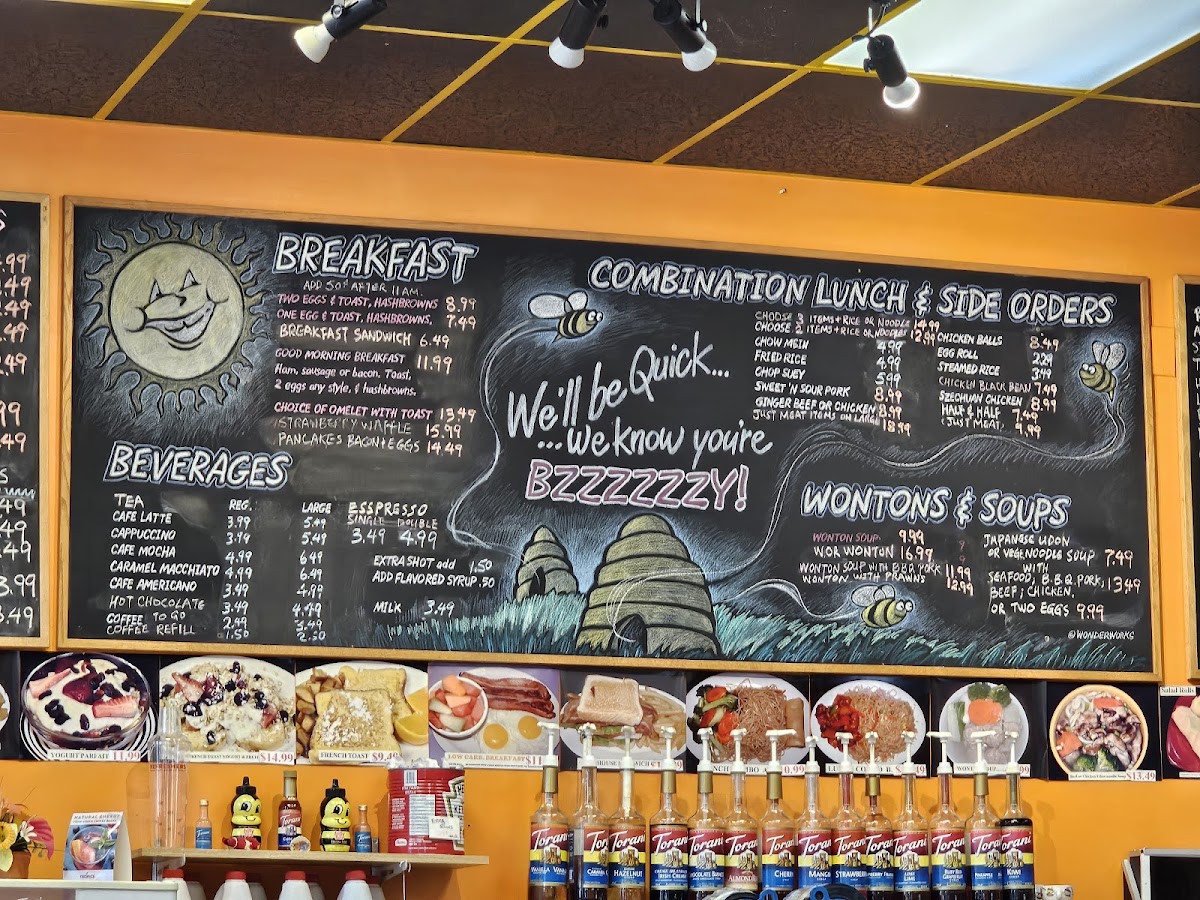 BREAKFAST
ADD 50¢ AFTER 11AM.
TWO EGGS & TOAST, HASHBROWNS 8.99
ONE EGG & TOAST, HASHBROWNS, 7.49
BREAKFAST SANDWICH 6.49
GOOD MORNING BREAKFAST 11.99
Ham, sausage or bacon. Toast,
2 eggs any style, & hashbrowns.
CHOICE OF OMELET WITH TOAST 13.49
STRAWBERRY WAFFLE 15.99
PANCAKES BACON & EGGS 14.49
BEVERAGES
REG. LARGE
TEA
CAFE LATTE 3.99 5.49
CAPPUCCINO 3.49 5.49
CAFE MOCHA 4.99 6.49
CARAMEL MACCHIATO 4.99 6.49
CAFE AMERICANO 3.49 4.99
HOT CHOCOLATE 3.49 4.49
COFFEE TO GO 2.99 3.49
COFFEE REFILL 1.50 2.50
ESSPRESSO
SINGLE DOUBLE
3.49 4.99
EXTRA SHOT add 1.50
ADD FLAVORED SYRUP .50
MILK 3.49
We'll be Quick...
...we know you're
BZZZZZZY!
COMBINATION LUNCH & SIDE ORDERS
CHOOSE 3 ITEMS + RICE OR NOODLE 14.99
CHOOSE 2 ITEMS + RICE OR NOODLES 12.99
CHOW MEIN 4.99
FRIED RICE 4.99
CHOP SUEY 5.99
SWEET 'N SOUR PORK 8.99
GINGER BEEF OR CHICKEN 8.99
JUST MEAT ITEMS ON LARGE 18.99
CHICKEN BALLS 8.49
EGG ROLL 2.29
STEAMED RICE 3.49
CHICKEN BLACK BEAN 7.49
SZECHUAN CHICKEN 8.99
HALF & HALF 7.49
(JUST MEAT, 9.99
WONTONS & SOUPS
WONTON SOUP 9.99
WOR WONTON 16.97
WONTON SOUP WITH B.B.Q. PORK 11.99
WONTON WITH PRAWNS 12.99
JAPANESE UDON
OR VEGE NOODLE SOUP 7.49
WITH
SEAFOOD, B.B.Q. PORK, 13.49
BEEF, CHICKEN,
OR TWO EGGS 9.99
@WONDERWORKS
YOGURT PARFAIT 11.99
$14.99
FRENCH TOAST $9.49
LOW CARB. BREAKFAST $11
$13.49
Salad Rolls
Torani
VANILLA
Torani
CARAMEL
Torani
HAZELNUT
Torani
IRISH CREAM
Torani
CHOCOLATE
Torani
ALMOND
Torani
CHERRY
Torani
MANGO
Torani
STRAWBERRY
Torani
Torani
LIME
Torani
Torani
Torani
KIWI